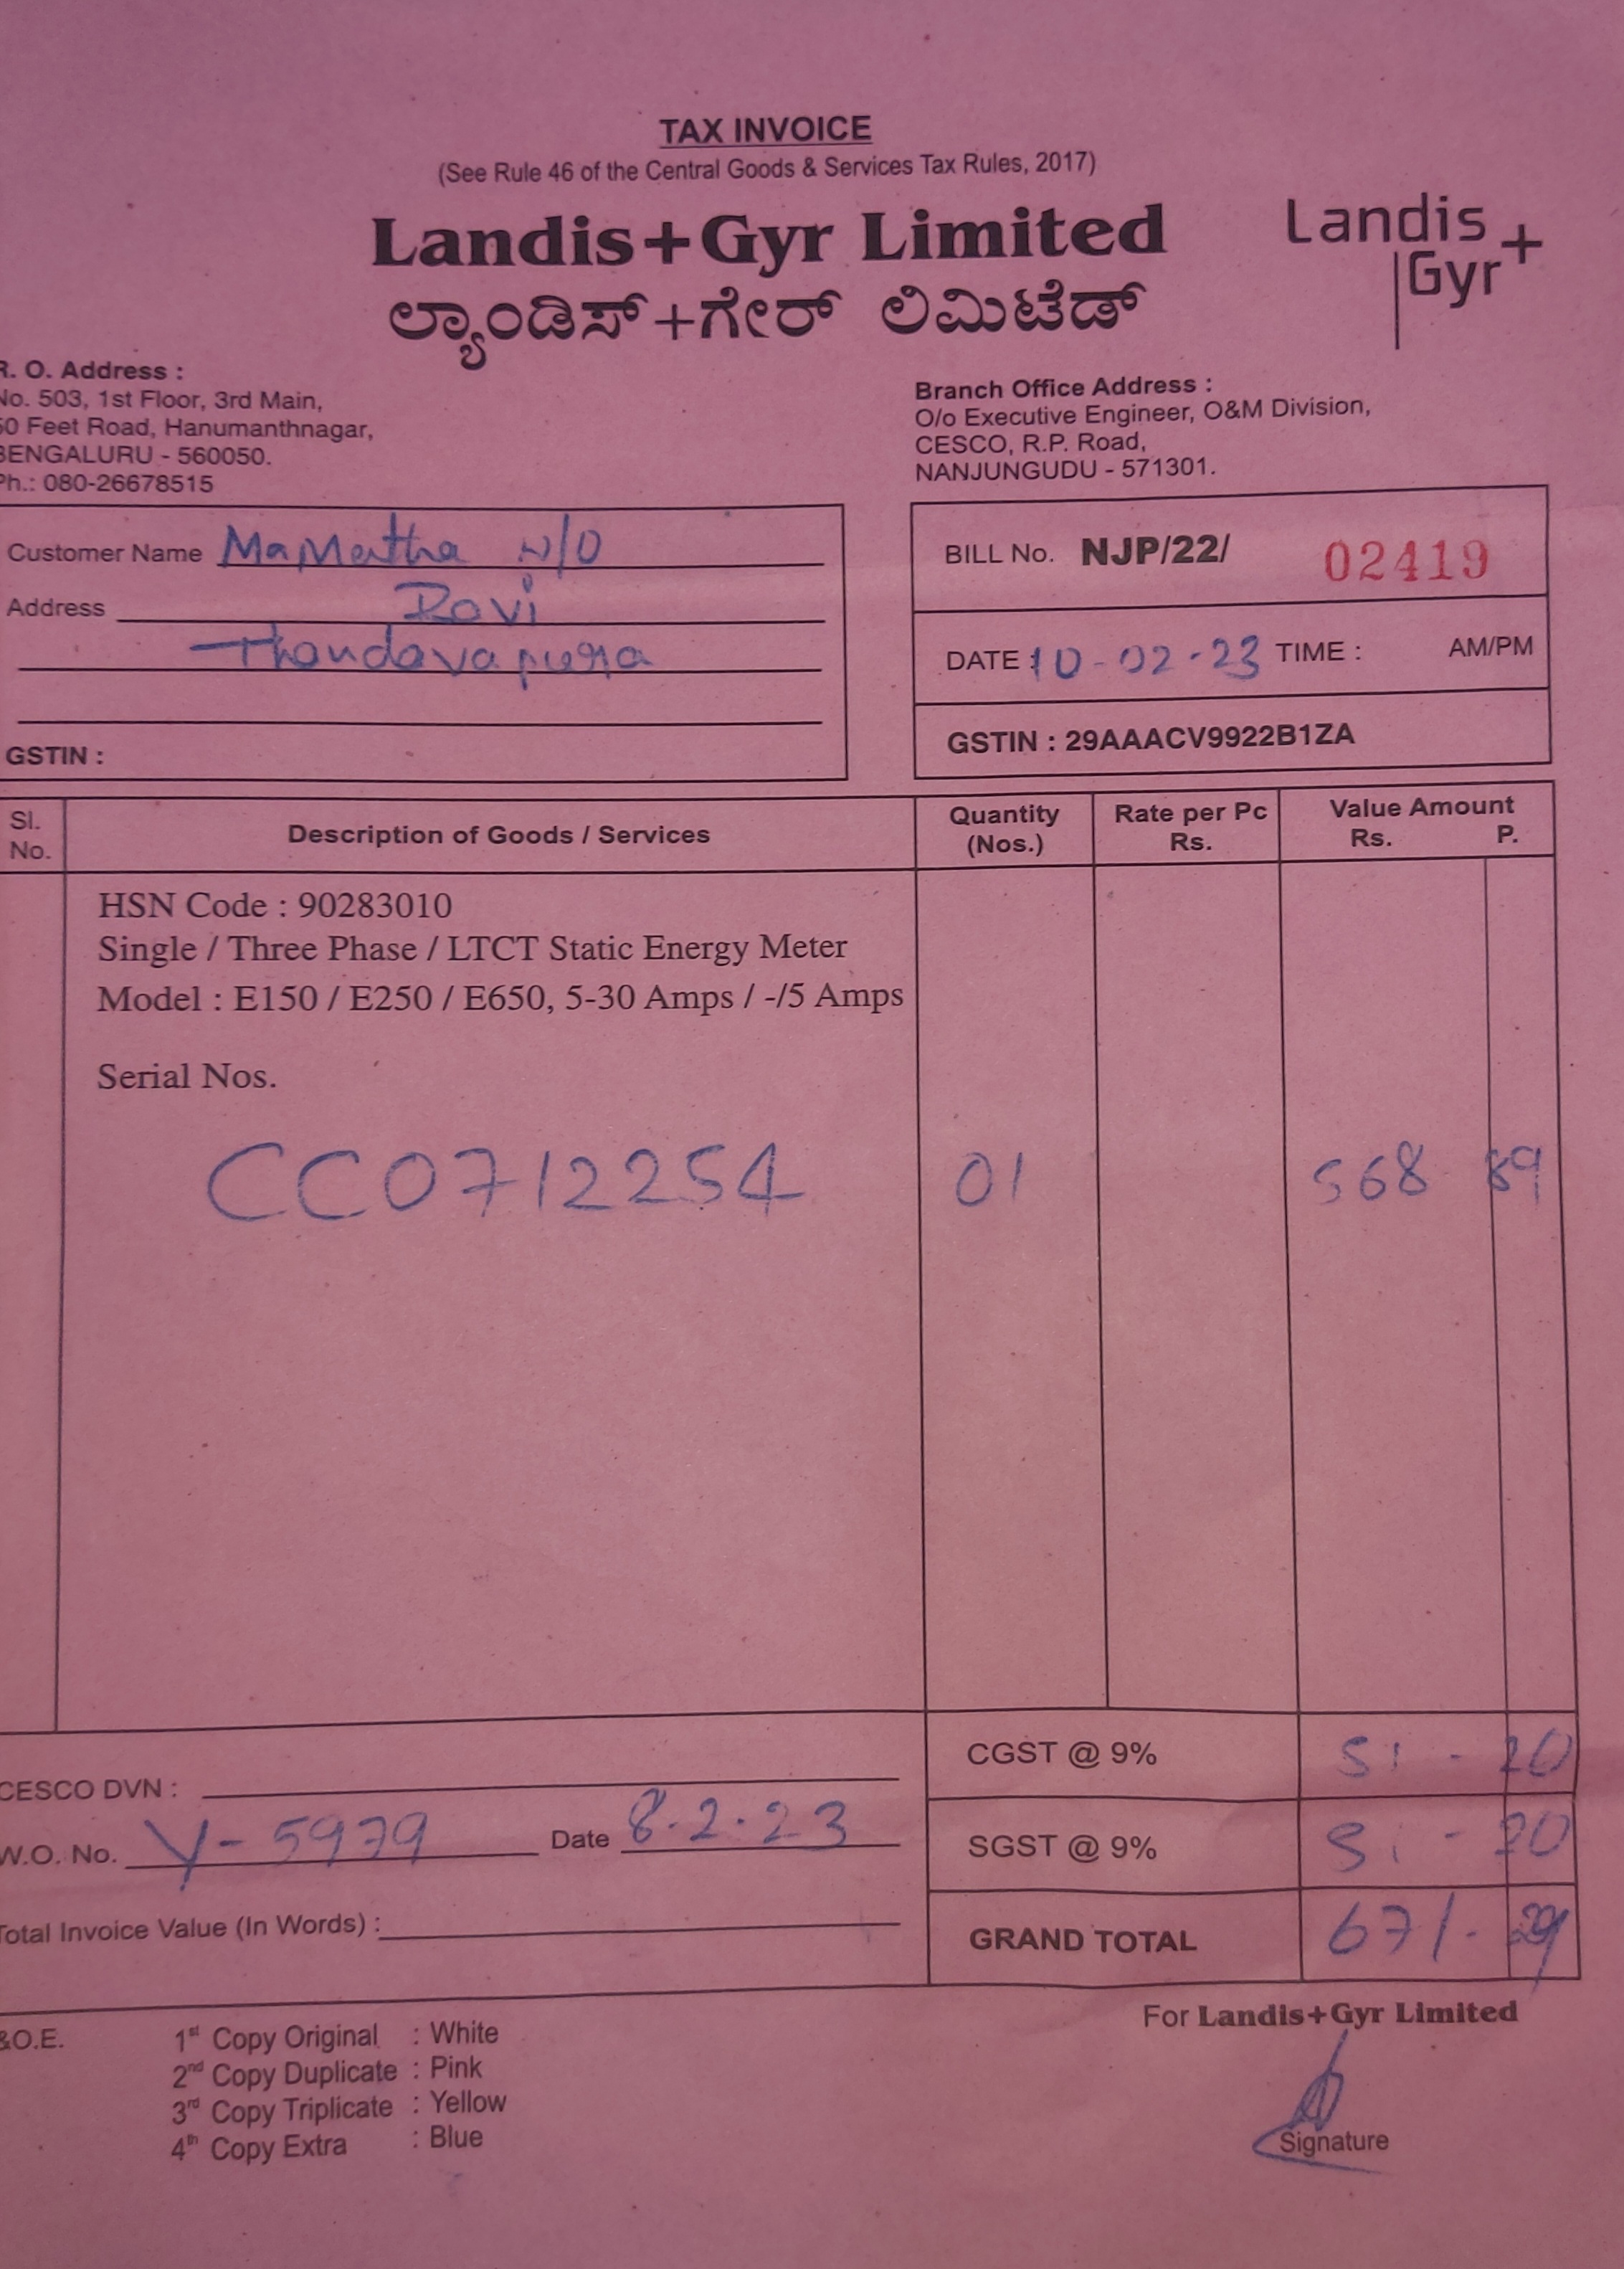 TAX INVOICE
(See Rule 46 of the Central Goods & Services Tax Rules, 2017)
Landis+Gyr Limited
ಲ್ಯಾಂಡಿಸ್+ಗೇರ್ ಲಿಮಿಟೆಡ್
Landis
Gyr+
R. O. Address :
No. 503, 1st Floor, 3rd Main,
50 Feet Road, Hanumanthnagar,
BENGALURU - 560050.
Ph.: 080-26678515
Branch Office Address :
O/o Executive Engineer, O&M Division,
CESCO, R.P. Road,
NANJUNGUDU - 571301.
Customer Name Mamatha W/O
Address Ravi
Thandavapura
GSTIN :
BILL No. NJP/22/ 02419
DATE : 10-02-23 TIME : AM/PM
GSTIN : 29AAACV9922B1ZA
Sl. No. Description of Goods / Services Quantity (Nos.) Rate per Pc Rs. Value Amount Rs. P.
HSN Code : 90283010
Single / Three Phase / LTCT Static Energy Meter
Model : E150 / E250 / E650, 5-30 Amps / -/5 Amps
Serial Nos.
CC0712254 01 568 89
CGST @ 9% 51-20
CESCO DVN :
W.O. No. Y-5979 Date 8.2.23
SGST @ 9% 51-20
Total Invoice Value (In Words) :
GRAND TOTAL 671-29
&O.E.
1st Copy Original : White
2nd Copy Duplicate : Pink
3rd Copy Triplicate : Yellow
4th Copy Extra : Blue
For Landis+Gyr Limited
Signature